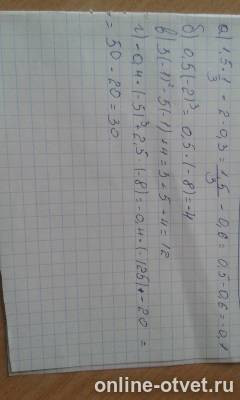 а) 1,5·1/3 - 2·0,3 = 1,5/3 - 0,6 = 0,5 - 0,6 = -0,1
б) 0,5·(-2)³ = 0,5·(-8) = -4
в) 3(-1)² - 5(-1) + 4 = 3 + 5 + 4 = 12
г) -0,4·(-5)³ + 2,5·(-8) = -0,4·(-125) + -20 =
= 50 - 20 = 30
online-otvet.ru